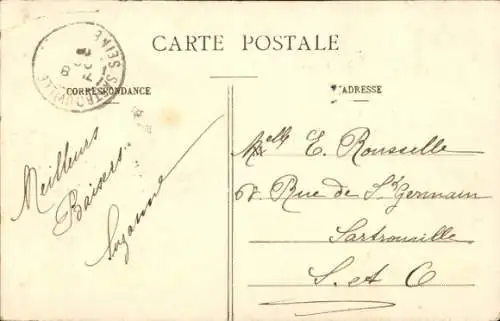 CARTE POSTALE
CORRESPONDANCE
ADRESSE
SARTROUVILLE
SEINE
Meilleurs
Baisers
Suzanne
Melle E. Rousselle
Rue de St Germain
Sartrouville
S. et O